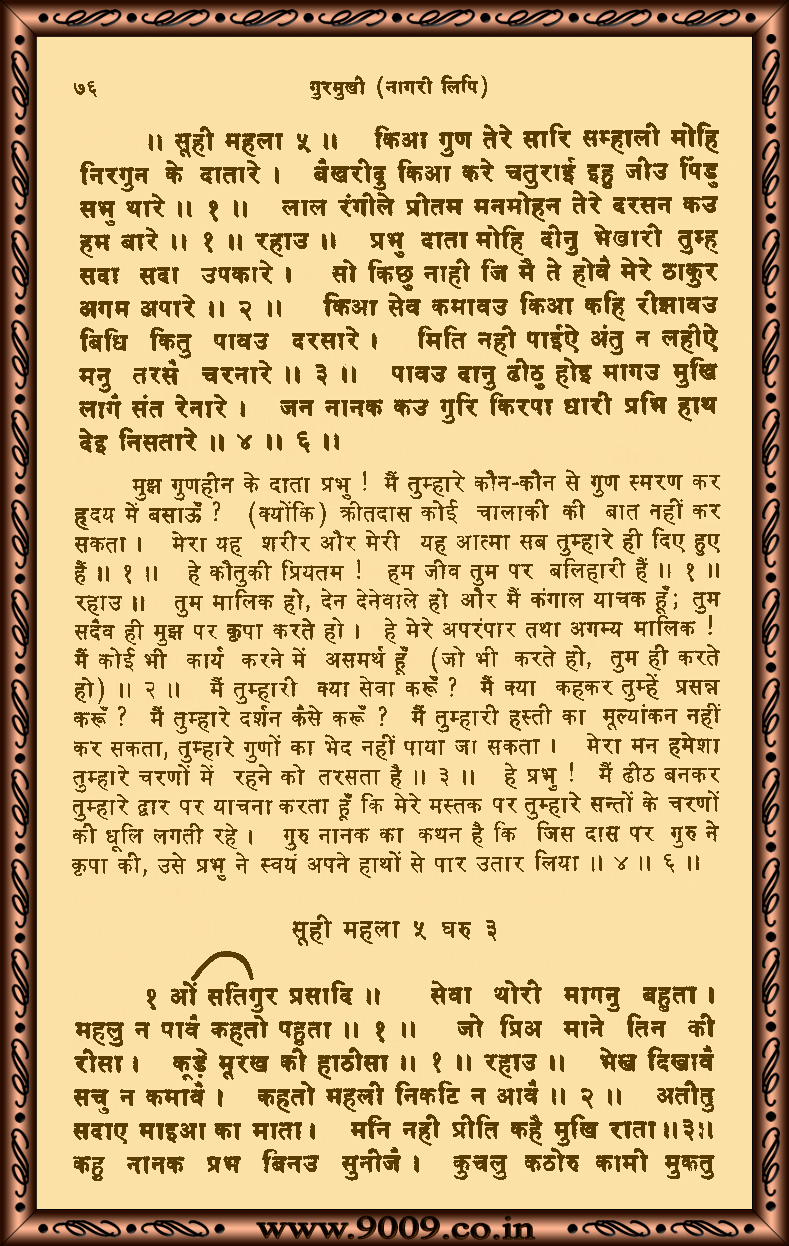 ७६ गुरमुखी (नागरी लिपि)
॥ सूही महला ५ ॥ किआ गुण तेरे सारि सम्हाली मोहि
निरगुन के दातारे । बैखरीदु किआ करे चतुराई इहु जीउ पिंडु
सभु थारे ॥ १ ॥ लाल रंगीले प्रीतम मनमोहन तेरे दरसन कउ
हम बारे ॥ १ ॥ रहाउ ॥ प्रभु दाता मोहि दीनु भेखारी तुम्ह
सदा सदा उपकारे । सो किछु नाही जि मै ते होवै मेरे ठाकुर
अगम अपारे ॥ २ ॥ किआ सेव कमावउ किआ कहि रीझावउ
बिधि कितु पावउ दरसारे । मिति नही पाईऐ अंतु न लहीऐ
मनु तरसै चरनारे ॥ ३ ॥ पावउ दानु ढीठु होइ मागउ मुखि
लागै संत रेनारे । जन नानक कउ गुरि किरपा धारी प्रभि हाथ
देइ निसतारे ॥ ४ ॥ ६ ॥
मुझ गुणहीन के दाता प्रभु ! मैं तुम्हारे कौन-कौन से गुण स्मरण कर
हृदय में बसाऊँ ? (क्योंकि) क्रीतदास कोई चालाकी की बात नहीं कर
सकता । मेरा यह शरीर और मेरी यह आत्मा सब तुम्हारे ही दिए हुए
हैं ॥ १ ॥ हे कौतुकी प्रियतम ! हम जीव तुम पर बलिहारी हैं ॥ १ ॥
रहाउ ॥ तुम मालिक हो, देन देनेवाले हो और मैं कंगाल याचक हूँ; तुम
सदैव ही मुझ पर कृपा करते हो । हे मेरे अपरंपार तथा अगम्य मालिक !
मैं कोई भी कार्य करने में असमर्थ हूँ (जो भी करते हो, तुम ही करते
हो) ॥ २ ॥ मैं तुम्हारी क्या सेवा करूँ ? मैं क्या कहकर तुम्हें प्रसन्न
करूँ ? मैं तुम्हारे दर्शन कैसे करूँ ? मैं तुम्हारी हस्ती का मूल्यांकन नहीं
कर सकता, तुम्हारे गुणों का भेद नहीं पाया जा सकता । मेरा मन हमेशा
तुम्हारे चरणों में रहने को तरसता है ॥ ३ ॥ हे प्रभु ! मैं ढीठ बनकर
तुम्हारे द्वार पर याचना करता हूँ कि मेरे मस्तक पर तुम्हारे सन्तों के चरणों
की धूलि लगती रहे । गुरु नानक का कथन है कि जिस दास पर गुरु ने
कृपा की, उसे प्रभु ने स्वयं अपने हाथों से पार उतार लिया ॥ ४ ॥ ६ ॥
सूही महला ५ घरु ३
१ ओं सतिगुर प्रसादि ॥ सेवा थोरी मागनु बहुता ।
महलु न पावै कहतो पहुता ॥ १ ॥ जो प्रिअ माने तिन की
रीसा । कूड़े मूरख की हाठीसा ॥ १ ॥ रहाउ ॥ भेख दिखावै
सचु न कमावै । कहतो महली निकटि न आवै ॥ २ ॥ अतीतु
सदाए माइआ का माता । मनि नही प्रीति कहै मुखि राता ॥३॥
कहु नानक प्रभ बिनउ सुनीजै । कुचलु कठोरु कामी मुकतु
www.9009.co.in